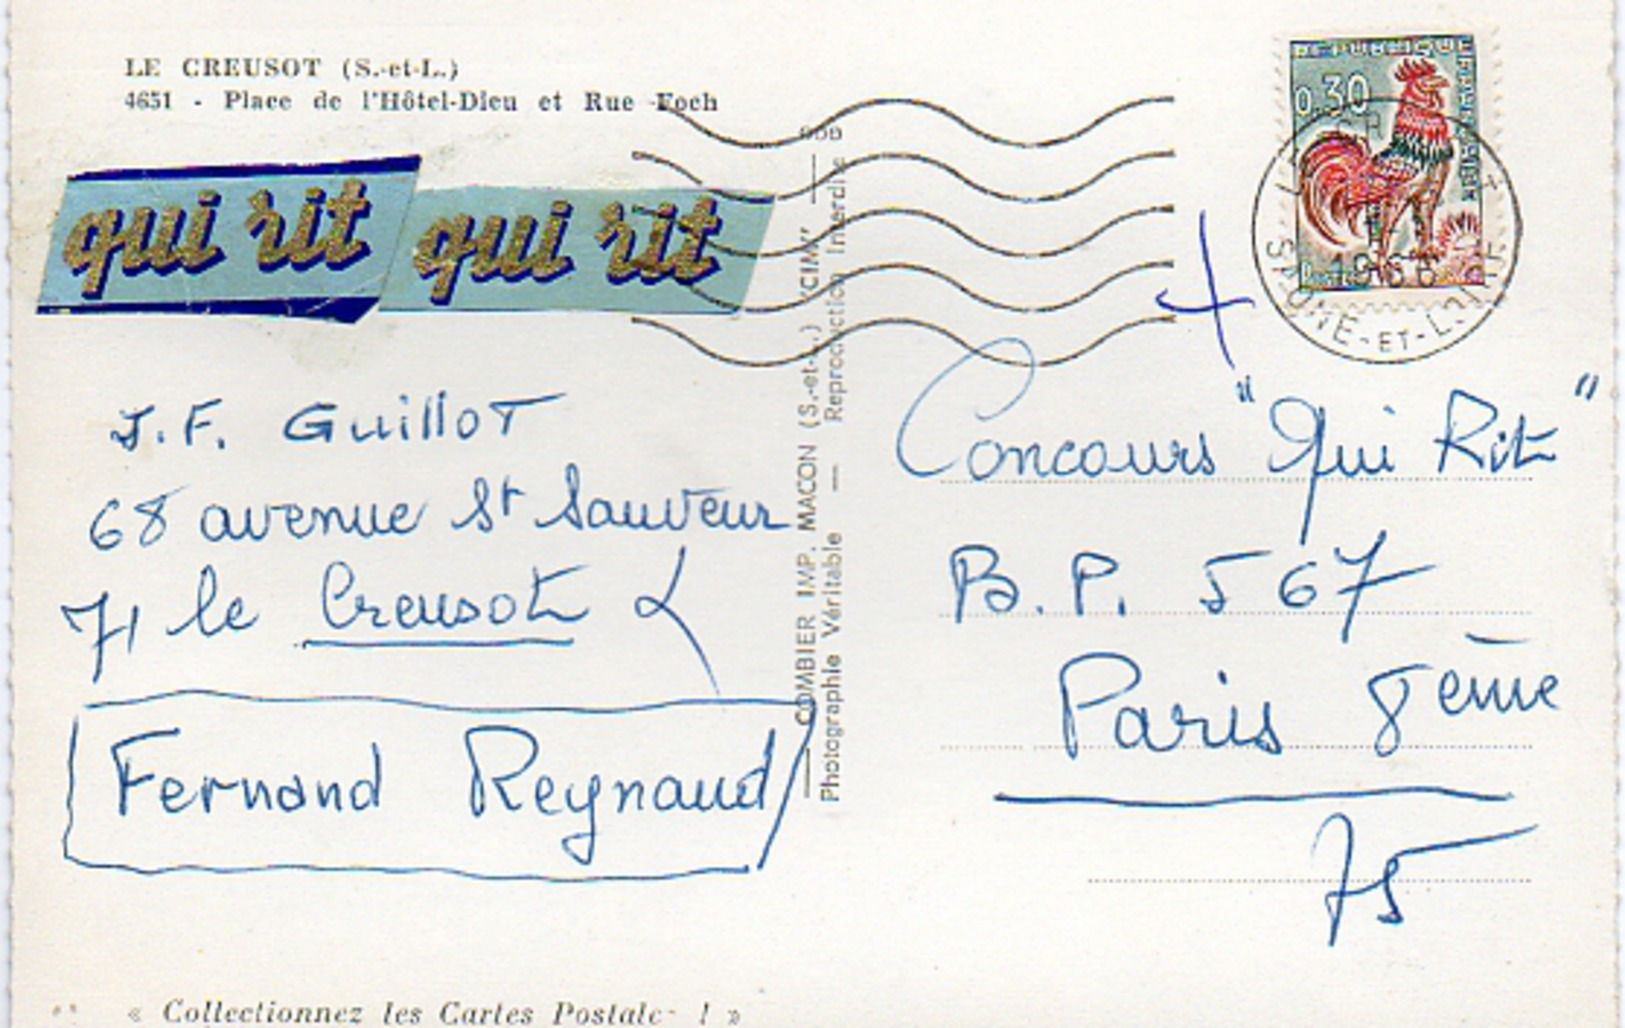 LE CREUSOT (S.-et-L.)
4651 - Place de l'Hôtel-Dieu et Rue Foch
qui rit qui rit
J.F. Guillot
68 avenue St Sauveur
71 le Creusot
Fernand Reynaud
« Collectionnez les Cartes Postale !»
COMBIER IMP. MACON (S.-et-L.) "CIM"
Photographie Véritable — Reproduction Interdite
REPUBLIQUE
0,30
Postes
SAONE-ET-LOIRE
Concours "Qui Rit"
B.P. 567
Paris 8ème
75